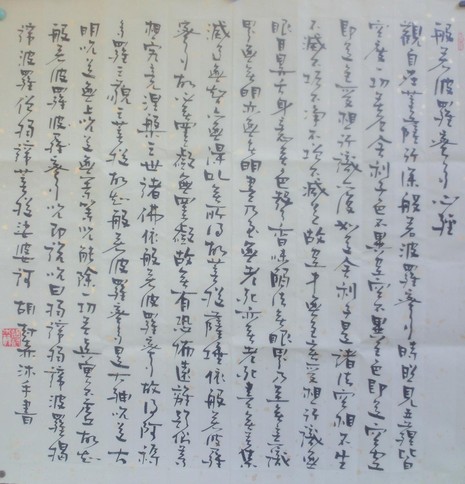 般若波羅蜜多心經
觀自在菩薩行深般若波羅蜜多時照見五蘊皆
空度一切苦厄舍利子色不異空空不異色色即是空空
即是色受想行識亦復如是舍利子是諸法空相不生
不滅不垢不淨不增不減是故空中無色無受想行識無
眼耳鼻舌身意無色聲香味觸法無眼界乃至無意識
界無無明亦無無明盡乃至無老死亦無老死盡無苦集
滅道無智亦無得以無所得故菩提薩埵依般若波羅
蜜多故心無罣礙無罣礙故無有恐怖遠離顛倒夢
想究竟涅槃三世諸佛依般若波羅蜜多故得阿耨
多羅三藐三菩提故知般若波羅蜜多是大神咒是大
明咒是無上咒是無等等咒能除一切苦真實不虛故說
般若波羅波羅蜜多咒即說咒曰揭諦揭諦波羅揭
諦波羅僧揭諦菩提娑婆訶 胡 沐手書